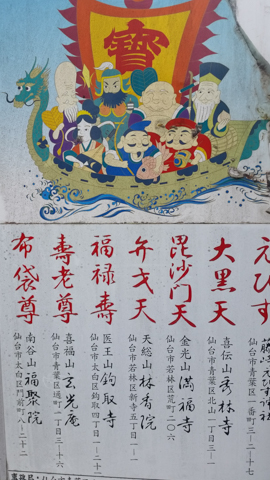 寳
えびす
藤崎えびす神社
仙台市青葉区一番町三-
大黒天
喜伝山秀林寺
仙台市青葉区北山一丁目三-
毘沙門天
金光山満福寺
仙台市若林区荒町二〇六
弁才天
天総山林香院
仙台市若林区新寺五丁目一-一
福禄寿
医王山鈎取寺
仙台市太白区鈎取四丁目一-二一
寿老尊
喜福山玄光庵
仙台市青葉区通町一丁目三-十六
布袋尊
南谷山福聚院
仙台市太白区門前町八-二十二